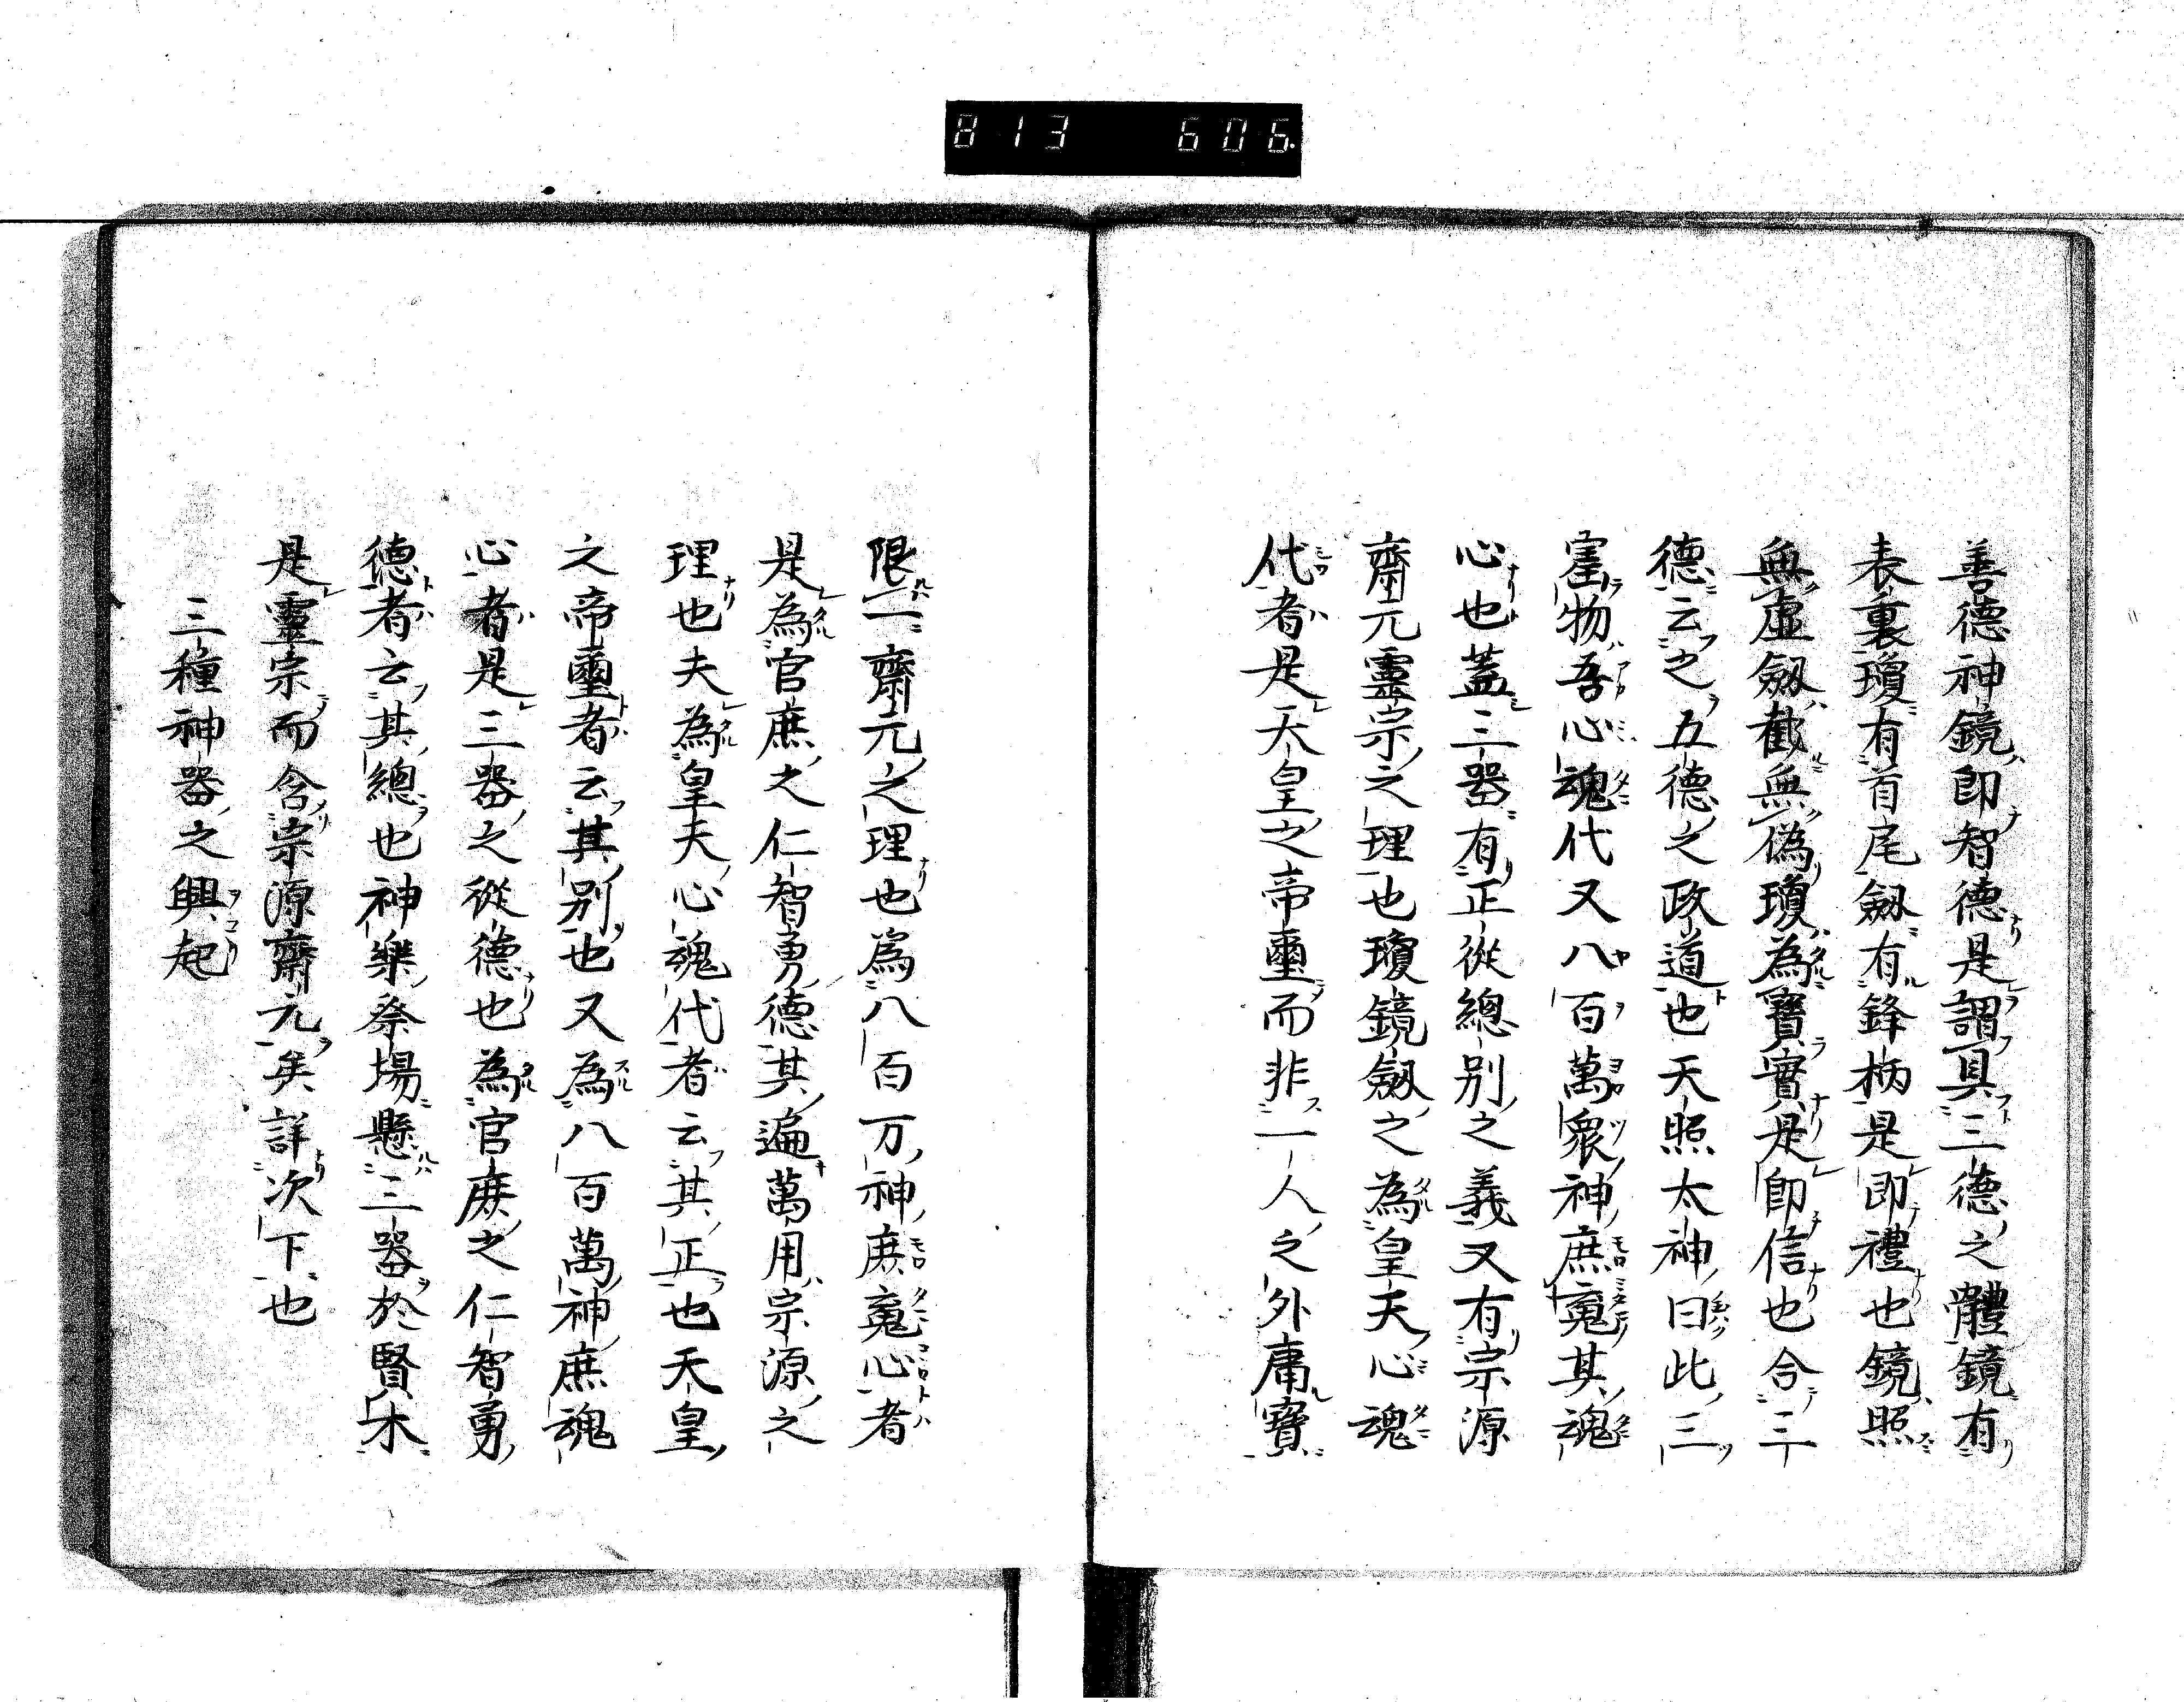 813 606.
善德神鏡即智德是謂具三德之體鏡有
表裏瓊有首尾劔有鋒柄是即禮也鏡照
無虛劔截無偽瓊為寶實是即信也合三
德云之五德之政道也天照太神曰此三
物吾心魂代又八百萬衆神庶䰟其魂
心也蓋三器有正從總別之義又有宗源
齋元靈宗之理也瓊鏡劔之為皇天心魂
代者是天皇之帝璽而非一人之外庸寶
限二齋元之理也為八百万神庶䰟心者
是為官庶之仁智勇德其遍萬用宗源之
理也夫為皇天心魂代者云其正也天皇
之帝璽者云其別也又為八百萬神庶魂
心者是三器之從德也為官庶之仁智勇
德者云其總也神樂祭場懸三器於賢木
是靈宗而含宗源齋元矣詳次下也
三種神器之興起